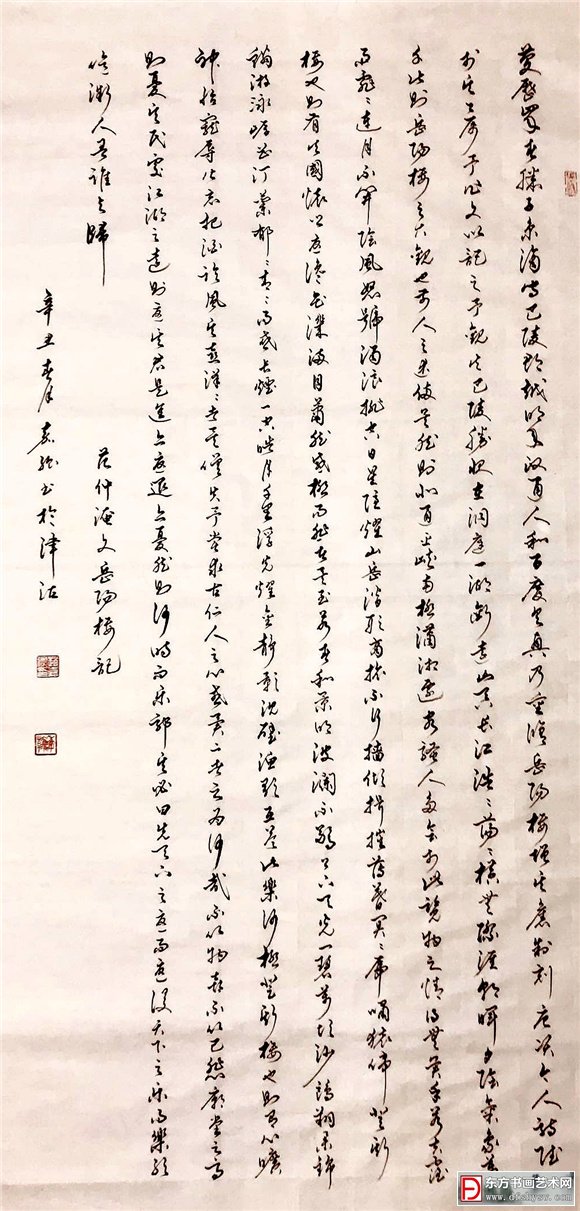 慶歷四年春滕子京謫守巴陵郡越明年政通人和百廢具興乃重修岳陽樓增其舊制刻唐賢今人詩賦
於其上屬予作文以記之予觀夫巴陵勝狀在洞庭一湖銜遠山吞長江浩〻蕩〻橫無際涯朝暉夕陰氣象萬
千此則岳陽樓之大觀也前人之述備矣然則北通巫峽南極瀟湘遷客騷人多會於此覽物之情得無異乎若夫霪
雨霏〻連月不開陰風怒號濁浪排空日星隱耀山岳潛形商旅不行檣傾楫摧薄暮冥〻虎嘯猿啼登斯
樓也則有去國懷鄉憂讒畏譏滿目蕭然感極而悲者矣至若春和景明波瀾不驚上下天光一碧萬頃沙鷗翔集錦
鱗游泳岸芷汀蘭郁〻青〻而或長煙一空皓月千里浮光耀金靜影沉璧漁歌互答此樂何極登斯樓也則有心曠
神怡寵辱皆忘把酒臨風其喜洋〻者矣嗟夫予嘗求古仁人之心或異二者之為何哉不以物喜不以己悲廟堂之高
則憂其民處江湖之遠則憂其君是進亦憂退亦憂然則何時而樂耶其必曰先天下之憂而憂後天下之樂而樂歟
噫微斯人吾誰與歸
范仲淹文岳陽樓記
辛丑春月書於津沽
东方书画艺术网
www.dfshysw.com